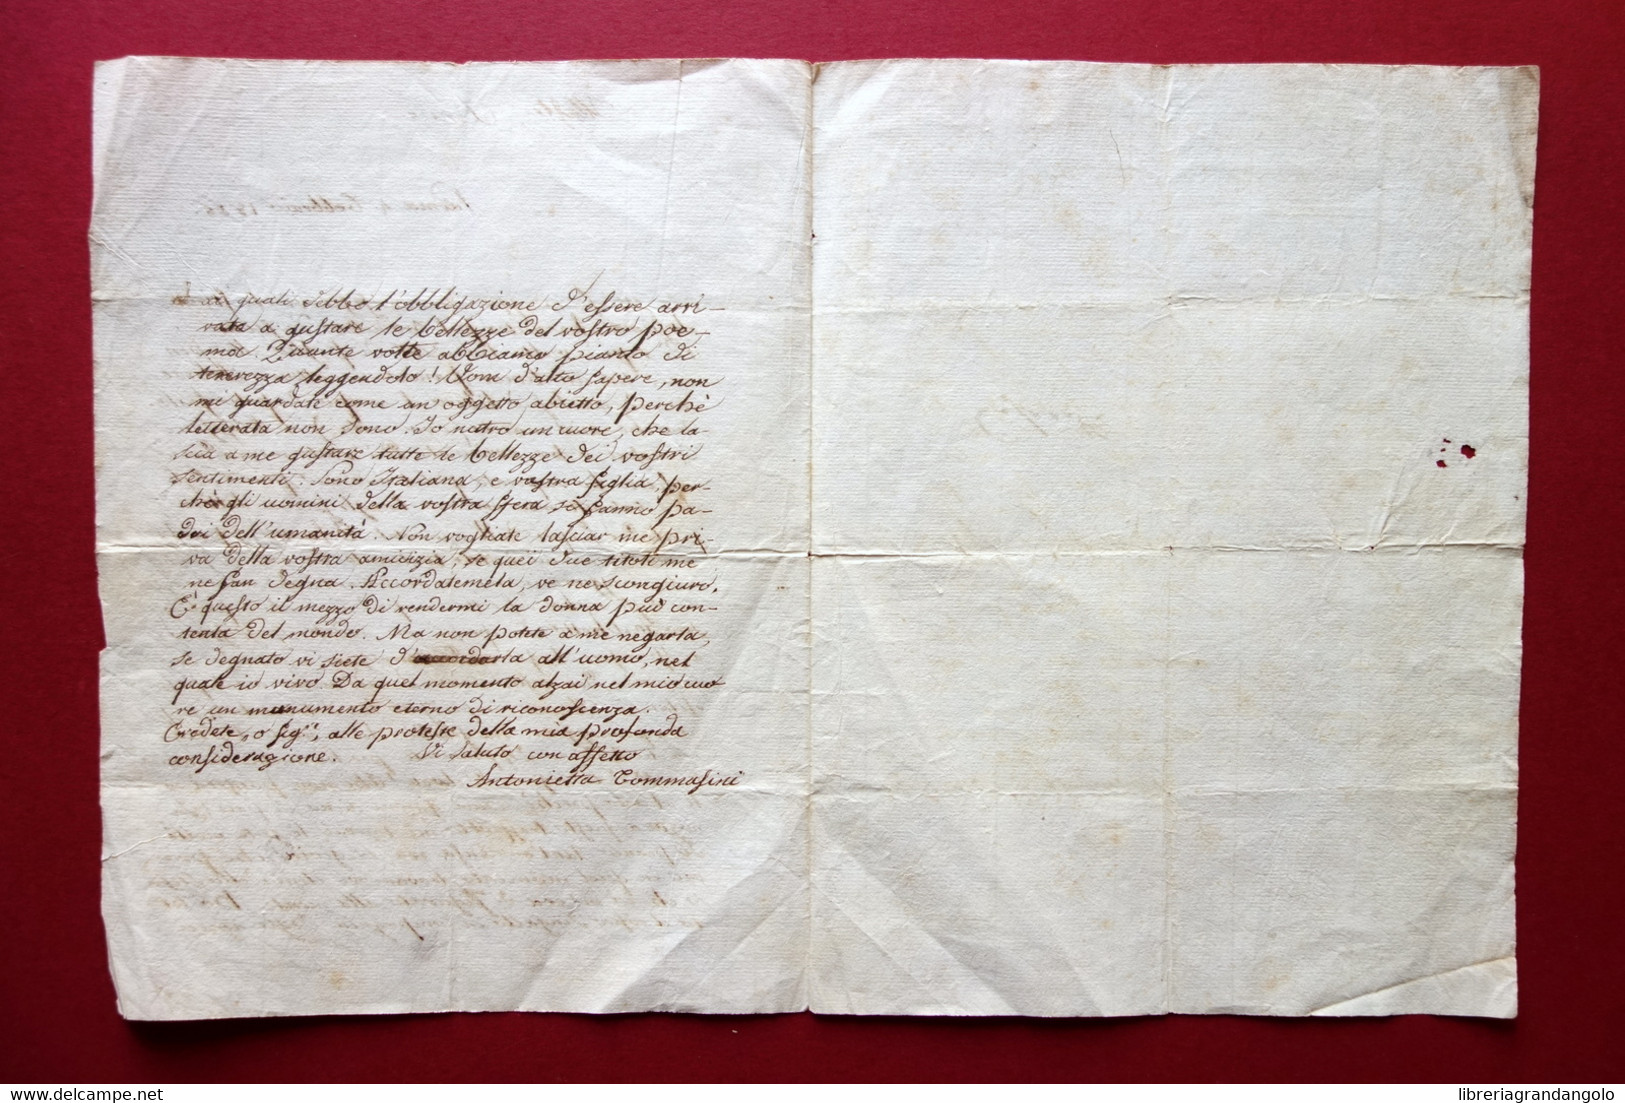 ai quali debbo l'obbligazione d'essere arri-
vata a gustare le bellezze del vostro poe-
ma. Quante volte abbiamo pianto di
tenerezza leggendolo! Uom d'alto sapere, non
mi guardate come un oggetto abietto, perchè
letterata non sono. Io nutro un cuore, che la-
scia a me gustare tutte le bellezze dei vostri
sentimenti. Sono Italiana, e vostra figlia, per-
chè gli uomini della vostra sfera si fanno pa-
dri dell'umanità. Non vogliate lasciar me pri-
va della vostra amicizia, se quei due titoli me
ne fan degna. Accordatemela, ve ne scongiuro.
E' questo il mezzo di rendermi la donna più con-
tenta del mondo. Ma non potete a me negarla,
se degnato vi siete d'accordarla all'uomo, nel
quale io vivo. Da quel momento alzai nel mio cuo-
re un monumento eterno di riconoscenza.
Credete, o sig.r, alle proteste della mia profonda
considerazione. Vi saluto con affetto
Antonietta Tommasini
libreriagrandangolo